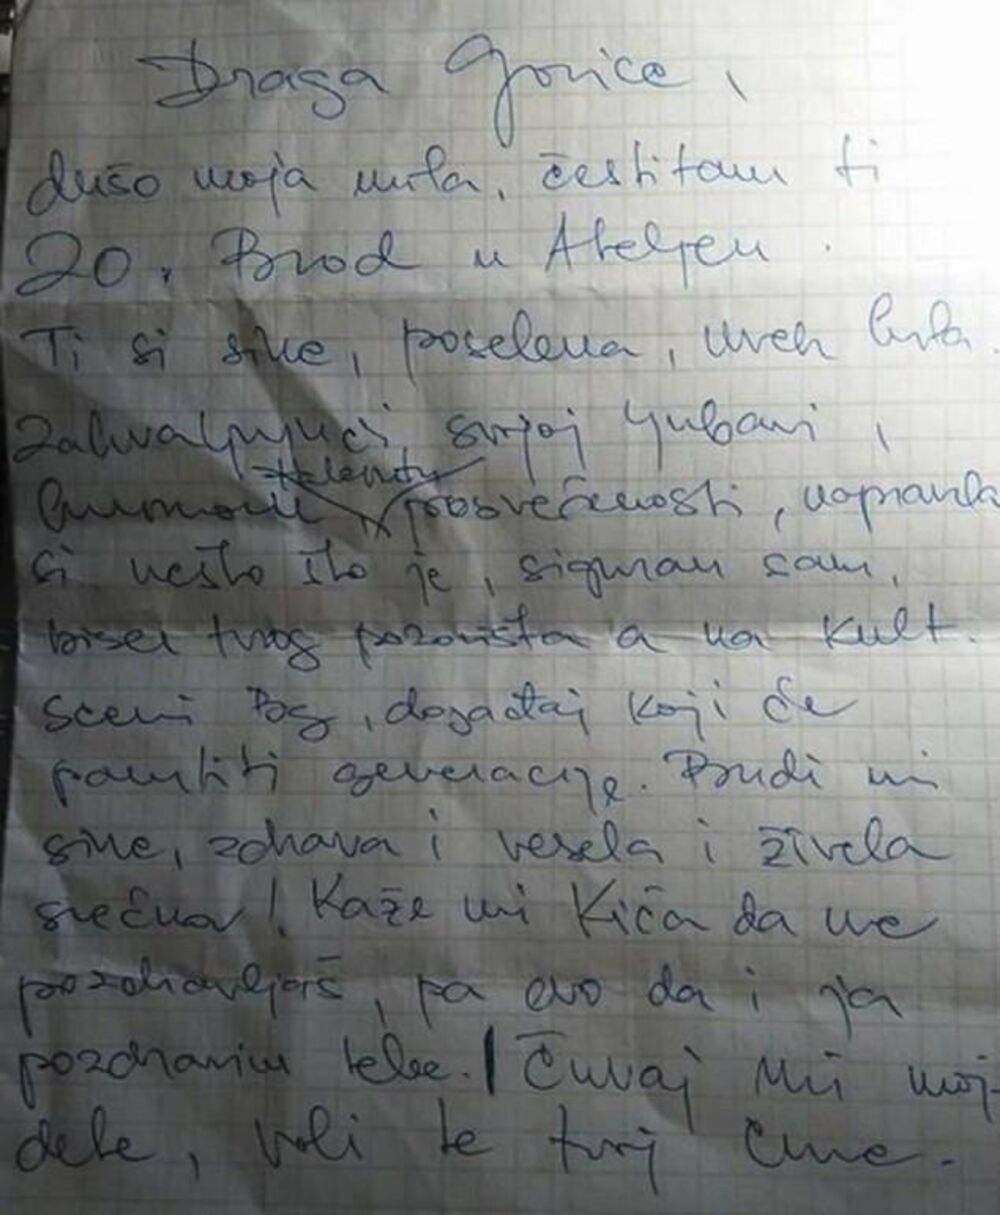 Draga Gorice,
dušo moja mila, čestitam ti
20. Brod u Ateljeu.
Ti si sine, poselena, uvek bila.
Zahvaljujući svojoj ljubavi,
talentu
posvećenosti, napravila
si nešto što je, siguran sam,
biser tvog pozorišta a na kult.
sceni Bg, događaj koji će
pamtiti generacije. Budi mi
sine, zdrava i vesela i živela
srećna! Kaže mi Kića da me
pozdravljaš, pa evo da i ja
pozdravim tebe. Čuvaj mi moj
dete, voli te tvoj Čme.